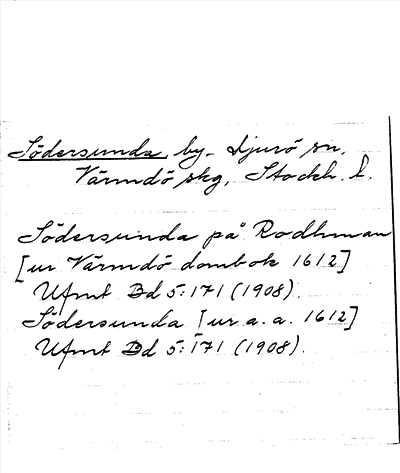 Södersunda, by. Djurö sn,
Värmdö skg, Stockh. l.
Södersunda på Rodhman
[ur Värmdö dombok 1612]
Ufmt Bd 5:171 (1908).
Södersunda [ur a.a. 1612]
Ufmt Bd 5:171 (1908).